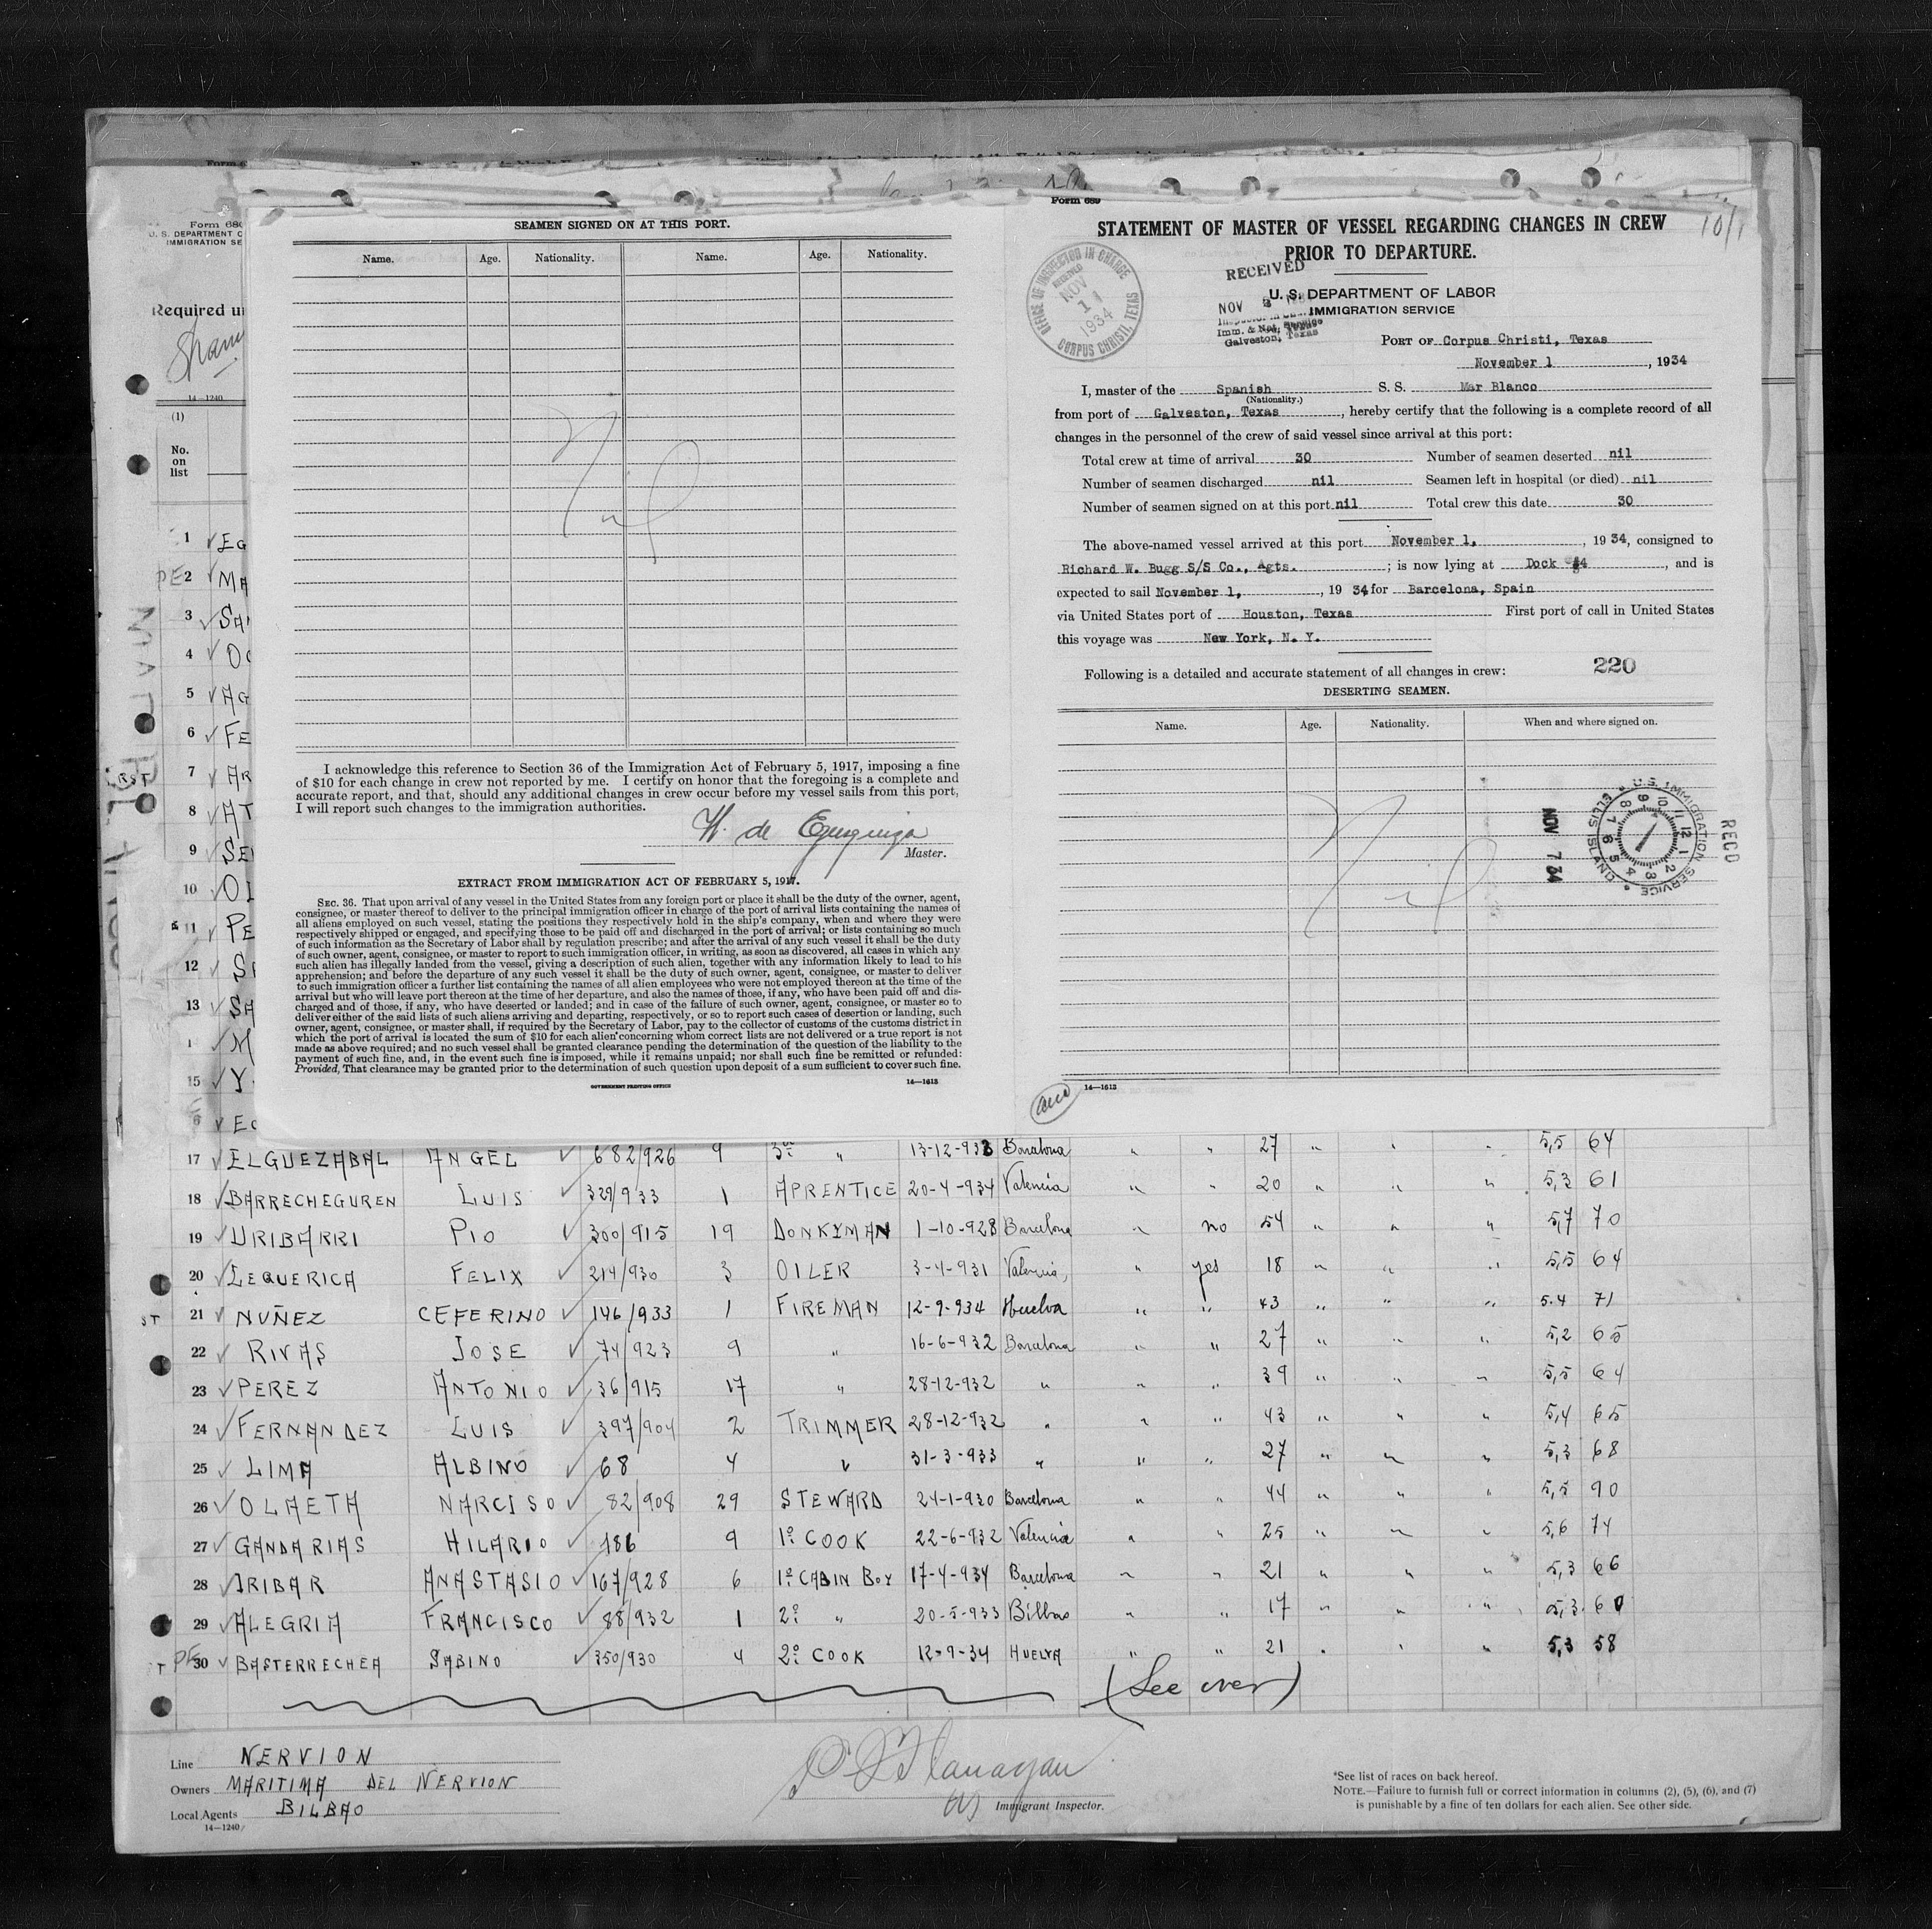 Form 689
SEAMEN SIGNED ON AT THIS PORT.
Name. Age. Nationality. Name. Age. Nationality.
Nil
I acknowledge this reference to Section 36 of the Immigration Act of February 5, 1917, imposing a fine
of $10 for each change in crew not reported by me. I certify on honor that the foregoing is a complete and
accurate report, and that, should any additional changes in crew occur before my vessel sails from this port,
I will report such changes to the immigration authorities.
Master.
EXTRACT FROM IMMIGRATION ACT OF FEBRUARY 5, 1917.
SEC. 36. That upon arrival of any vessel in the United States from any foreign port or place it shall be the duty of the owner, agent,
consignee, or master thereof to deliver to the principal immigration officer in charge of the port of arrival lists containing the names of
all aliens employed on such vessel, stating the positions they respectively hold in the ship's company, when and where they were
respectively shipped or engaged, and specifying those to be paid off and discharged in the port of arrival; or lists containing so much
of such information as the Secretary of Labor shall by regulation prescribe; and after the arrival of any such vessel it shall be the duty
of such owner, agent, consignee, or master to report to such immigration officer, in writing, as soon as discovered, all cases in which any
such alien has illegally landed from the vessel, giving a description of such alien, together with any information likely to lead to his
apprehension; and before the departure of any such vessel it shall be the duty of such owner, agent, consignee, or master to deliver
to such immigration officer a further list containing the names of all alien employees who were not employed thereon at the time of the
arrival but who will leave port thereon at the time of her departure, and also the names of those, if any, who have been paid off and dis-
charged and of those, if any, who have deserted or landed; and in case of the failure of such owner, agent, consignee, or master so to
deliver either of the said lists of such aliens arriving and departing, respectively, or so to report such cases of desertion or landing, such
owner, agent, consignee, or master shall, if required by the Secretary of Labor, pay to the collector of customs of the customs district in
which the port of arrival is located the sum of $10 for each alien concerning whom correct lists are not delivered or a true report is not
made as above required; and no such vessel shall be granted clearance pending the determination of the question of the liability to the
payment of such fine, and, in the event such fine is imposed, while it remains unpaid; nor shall such fine be remitted or refunded:
Provided, That clearance may be granted prior to the determination of such question upon deposit of a sum sufficient to cover such fine.
GOVERNMENT PRINTING OFFICE 14—1613
STATEMENT OF MASTER OF VESSEL REGARDING CHANGES IN CREW
PRIOR TO DEPARTURE.
OFFICE OF INSPECTOR IN CHARGE
RECEIVED
NOV 1 1934
CORPUS CHRISTI, TEXAS
RECEIVED
NOV
Imm. & Nat. Service
Galveston, Texas
U. S. DEPARTMENT OF LABOR
IMMIGRATION SERVICE
PORT OF Corpus Christi, Texas
November 1, 1934
I, master of the Spanish S. S. Mar Blanco
(Nationality.)
from port of Galveston, Texas, hereby certify that the following is a complete record of all
changes in the personnel of the crew of said vessel since arrival at this port:
Total crew at time of arrival 30 Number of seamen deserted nil
Number of seamen discharged nil Seamen left in hospital (or died) nil
Number of seamen signed on at this port nil Total crew this date 30
The above-named vessel arrived at this port November 1, 1934, consigned to
Richard W. Bugg S/S Co., Agts. ; is now lying at Dock #4, and is
expected to sail November 1, 1934 for Barcelona, Spain
via United States port of Houston, Texas First port of call in United States
this voyage was New York, N. Y.
Following is a detailed and accurate statement of all changes in crew: 220
DESERTING SEAMEN.
Name. Age. Nationality. When and where signed on.
Nil
U.S. IMMIGRATION SERVICE
NOV 7 34
RECD
14—1613
Form 680
U. S. DEPARTMENT
IMMIGRATION
Required
14—1240
(1)
No.
on
list
1 EG
2 MA
3 SA
4
5 AG
6 FE
7 AR
8 AT
9 SE
10
11 PE
12
13 SA
15 Y
17 ELGUEZABAL ANGEL 682/926 9 3º " 13-12-933 Barcelona " " 27 " " " 5,5 64
18 BARRECHEGUREN LUIS 329/933 1 APRENTICE 20-4-934 Valencia " " 20 " " " 5,3 61
19 URIBARRI PIO 300/915 19 DONKYMAN 1-10-928 Barcelona " no 54 " " " 5,7 70
20 LEQUERICA FELIX 214/930 3 OILER 3-4-931 Valencia, " yes 18 " " " 5,5 64
21 NUÑEZ CEFERINO 146/933 1 FIREMAN 12-9-934 Huelva " " 43 " " " 5.4 71
22 RIVAS JOSE 74/923 9 " 16-6-932 Barcelona " " 27 " " " 5,2 65
23 PEREZ ANTONIO 36/915 17 " 28-12-932 " " " 39 " " " 5,5 64
24 FERNANDEZ LUIS 397/904 2 TRIMMER 28-12-932 " " " 43 " " " 5,4 65
25 LIMA ALBINO 68 4 " 31-3-933 " " " 27 " " " 5,3 68
26 OLAETA NARCISO 82/908 29 STEWARD 24-1-930 Barcelona " " 44 " " " 5,5 90
27 GANDARIAS HILARIO 186 9 1º COOK 22-6-932 Valencia " " 25 " " " 5,6 74
28 IRIBAR ANASTASIO 167/928 6 1º CABIN BOY 17-4-934 Barcelona " " 21 " " " 5,3 66
29 ALEGRIA FRANCISCO 88/932 1 2º " 20-5-933 Bilbao " " 17 " " " 5,3 60
30 BASTERRECHEA SABINO 350/930 4 2º COOK 12-9-34 HUELVA " " 21 " " " 5,3 58
(See over)
Line NERVION
Owners MARITIMA DEL NERVION
Local Agents BILBAO
14—1240
Immigrant Inspector.
*See list of races on back hereof.
NOTE.—Failure to furnish full or correct information in columns (2), (5), (6), and (7)
is punishable by a fine of ten dollars for each alien. See other side.